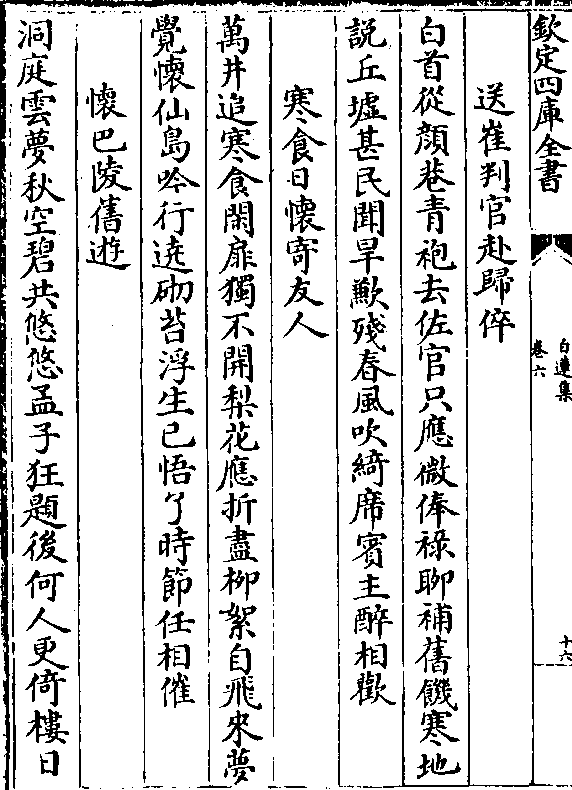 欽定四庫全書
白蓮集
卷六
十六
送崔判官赴歸倅
白首從顔巷青袍去佐官只應微俸祿聊補舊饑寒地
説丘墟甚民聞旱歉殘春風吹綺席賓主醉相歡
寒食日懷寄友人
萬井追寒食閑扉獨不開梨花應折盡柳絮自飛來夢
覺懷仙島吟行遶砌苔浮生已悟了時節任相催
懷巴陵舊遊
洞庭雲夢秋空碧共悠悠孟子狂題後何人更倚樓日